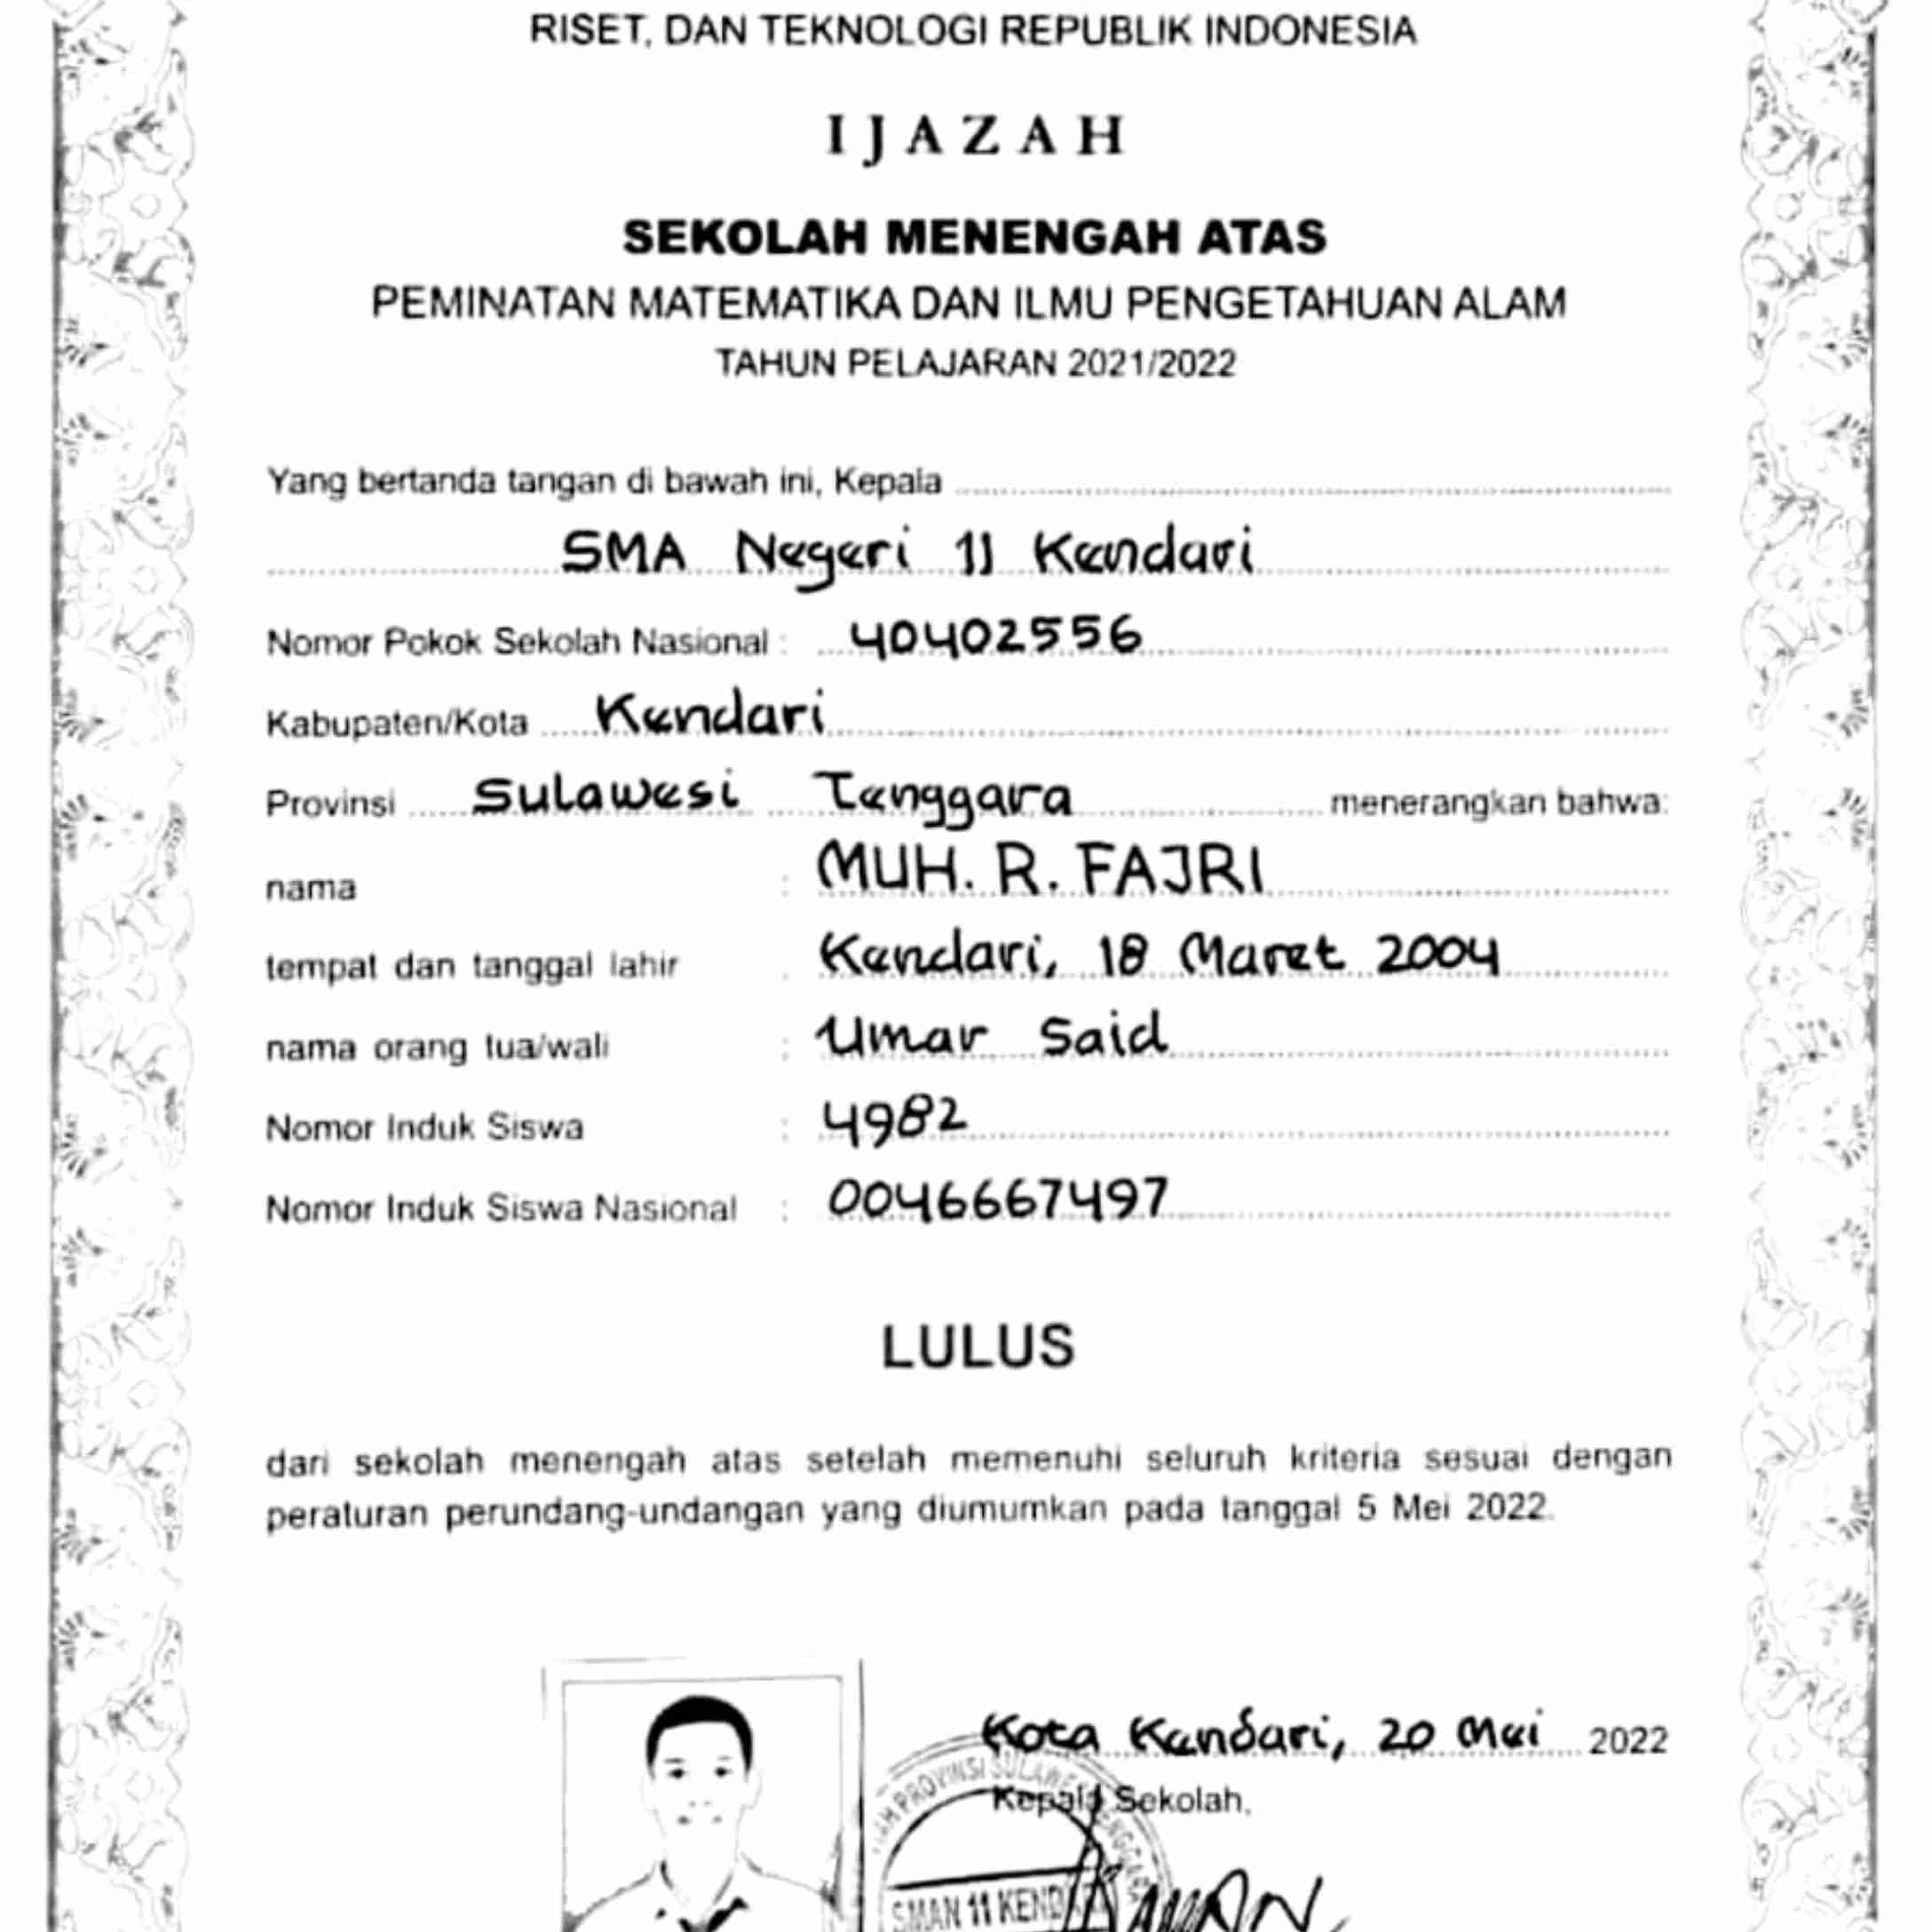 RISET, DAN TEKNOLOGI REPUBLIK INDONESIA
IJAZAH
SEKOLAH MENENGAH ATAS
PEMINATAN MATEMATIKA DAN ILMU PENGETAHUAN ALAM
TAHUN PELAJARAN 2021/2022
Yang bertanda tangan di bawah ini, Kepala
SMA Negeri 11 Kendari
Nomor Pokok Sekolah Nasional : 40402556
Kabupaten/Kota Kendari
Provinsi Sulawesi Tenggara menerangkan bahwa:
nama : MUH. R. FAJRI
tempat dan tanggal lahir : Kendari, 18 Maret 2004
nama orang tua/wali : Umar Said
Nomor Induk Siswa : 4982
Nomor Induk Siswa Nasional : 0046667497
LULUS
dari sekolah menengah atas setelah memenuhi seluruh kriteria sesuai dengan
peraturan perundang-undangan yang diumumkan pada tanggal 5 Mei 2022.
Kota Kendari, 20 Mei 2022
Kepala Sekolah,
PROVINSI SULAWESI TENGGARA
SMAN 11 KENDARI